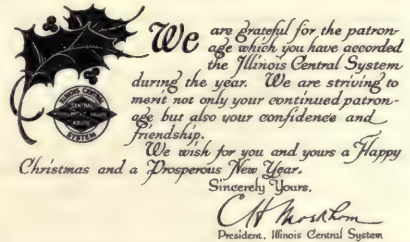 We are grateful for the patron-
age which you have accorded
the Illinois Central System
during the year. We are striving to
merit not only your continued patron-
age but also your confidence and
friendship.
We wish for you and yours a Happy
Christmas and a Prosperous New Year.
Sincerely Yours,
CH Markham
President, Illinois Central System
ILLINOIS CENTRAL
CENTRAL
ROUTE
SYSTEM